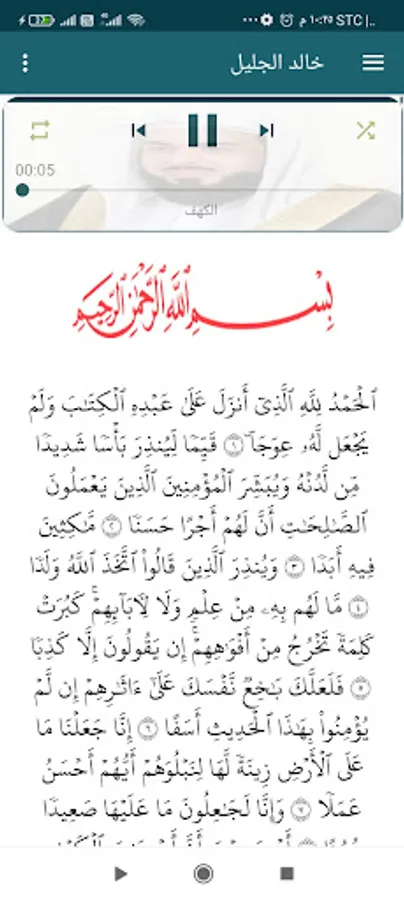 ١٠:٢٥ م STC |..
خالد الجليل
00:05
الكهف
بِسْمِ ٱللَّهِ ٱلرَّحْمَٰنِ ٱلرَّحِيمِ
ٱلْحَمْدُ لِلَّهِ ٱلَّذِىٓ أَنزَلَ عَلَىٰ عَبْدِهِ ٱلْكِتَٰبَ وَلَمْ
يَجْعَل لَّهُۥ عِوَجَاۜ ١ قَيِّمًا لِّيُنذِرَ بَأْسًا شَدِيدًا
مِّن لَّدُنْهُ وَيُبَشِّرَ ٱلْمُؤْمِنِينَ ٱلَّذِينَ يَعْمَلُونَ
ٱلصَّٰلِحَٰتِ أَنَّ لَهُمْ أَجْرًا حَسَنًا ٢ مَّٰكِثِينَ
فِيهِ أَبَدًا ٣ وَيُنذِرَ ٱلَّذِينَ قَالُوا۟ ٱتَّخَذَ ٱللَّهُ وَلَدًا
٤ مَّا لَهُم بِهِۦ مِنْ عِلْمٍ وَلَا لِءَابَآئِهِمْ ۚ كَبُرَتْ
كَلِمَةً تَخْرُجُ مِنْ أَفْوَٰهِهِمْ ۚ إِن يَقُولُونَ إِلَّا كَذِبًا
٥ فَلَعَلَّكَ بَٰخِعٌ نَّفْسَكَ عَلَىٰٓ ءَاثَٰرِهِمْ إِن لَّمْ
يُؤْمِنُوا۟ بِهَٰذَا ٱلْحَدِيثِ أَسَفًا ٦ إِنَّا جَعَلْنَا مَا
عَلَى ٱلْأَرْضِ زِينَةً لَّهَا لِنَبْلُوَهُمْ أَيُّهُمْ أَحْسَنُ
عَمَلًا ٧ وَإِنَّا لَجَٰعِلُونَ مَا عَلَيْهَا صَعِيدًا